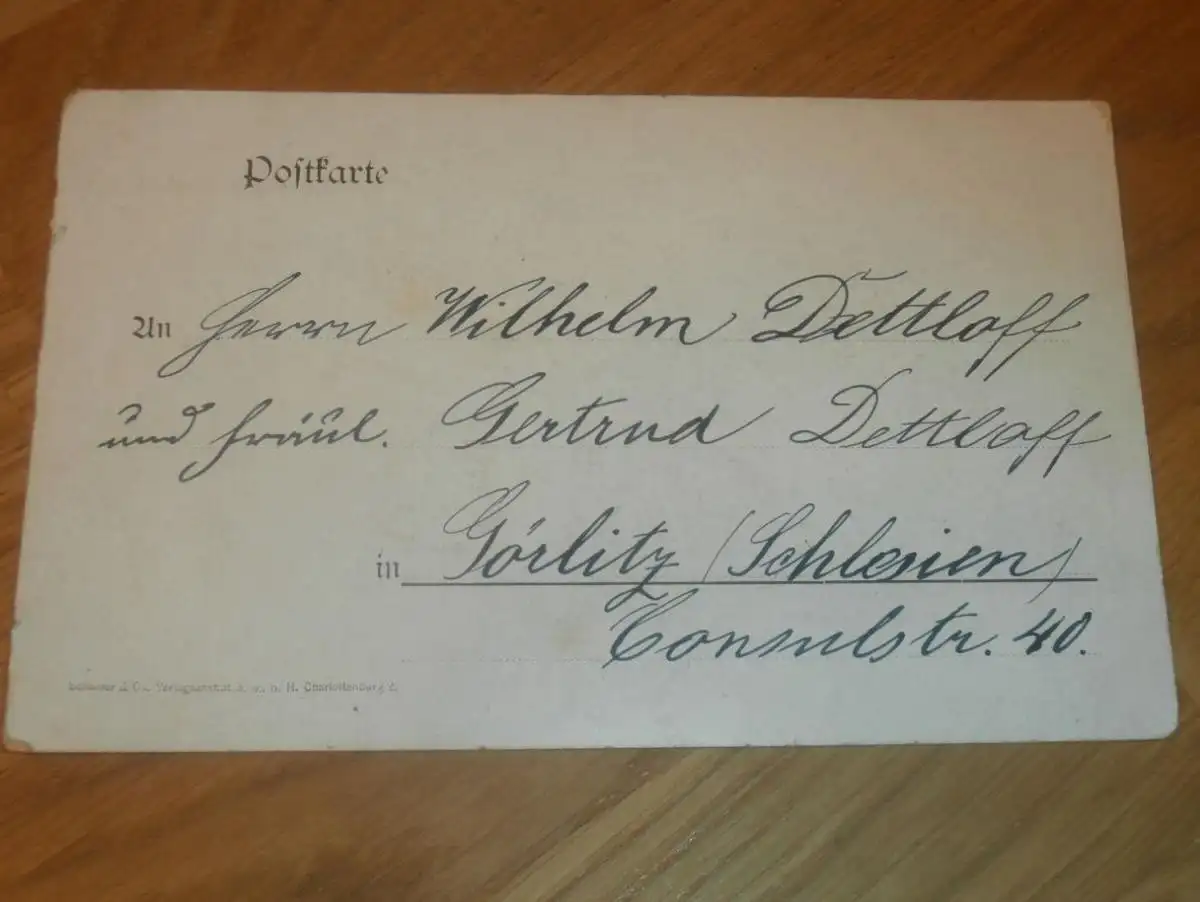 Postkarte
An Herrn Wilhelm Dettloff
und Fräul. Gertrud Dettloff
in Görlitz (Schlesien)
Consulstr. 40.
& Co. Verlagsanstalt H. Charlottenburg